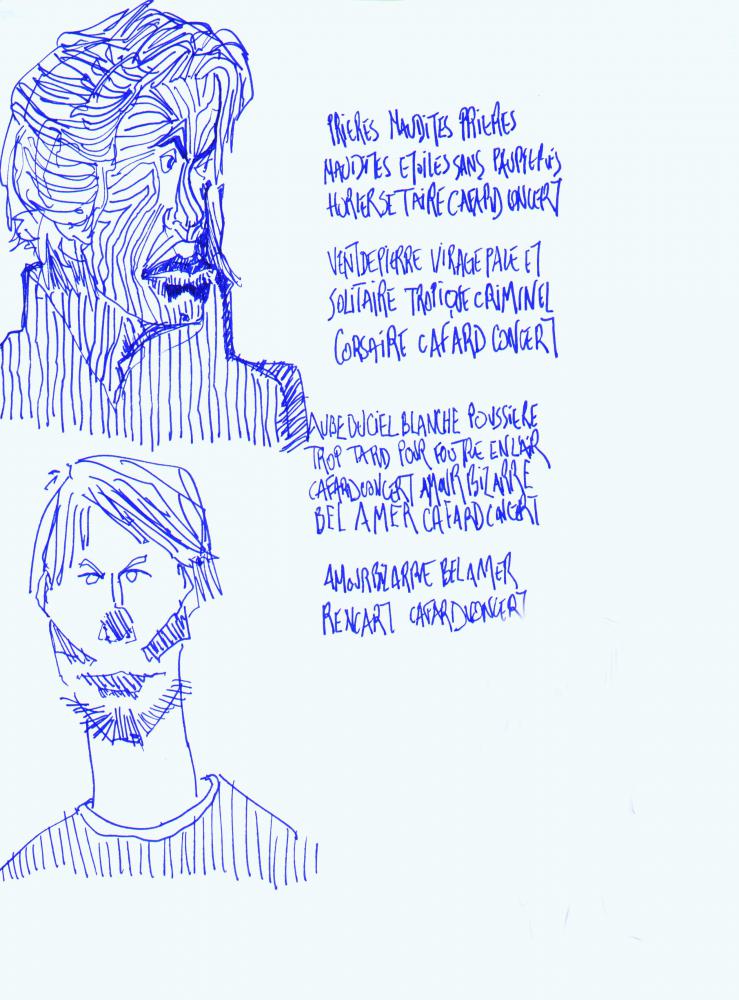 PRIERES MAUDITES PRIERES
MAUDITES ETOILES SANS PAUPIERES
HURLER SE TAIRE CAFARD CONCERT
VENT DE PIERRE VIRAGE PAVE ET
SOLITAIRE TROPIQUE CRIMINEL
CORSAIRE CAFARD CONCERT
AUBE DU CIEL BLANCHE POUSSIERE
TROP TARD POUR FOUTRE EN L'AIR
CAFARD CONCERT AMOUR BIZARRE
BEL AMER CAFARD CONCERT
AMOUR BIZARRE BEL AMER
RENCART CAFARD CONCERT